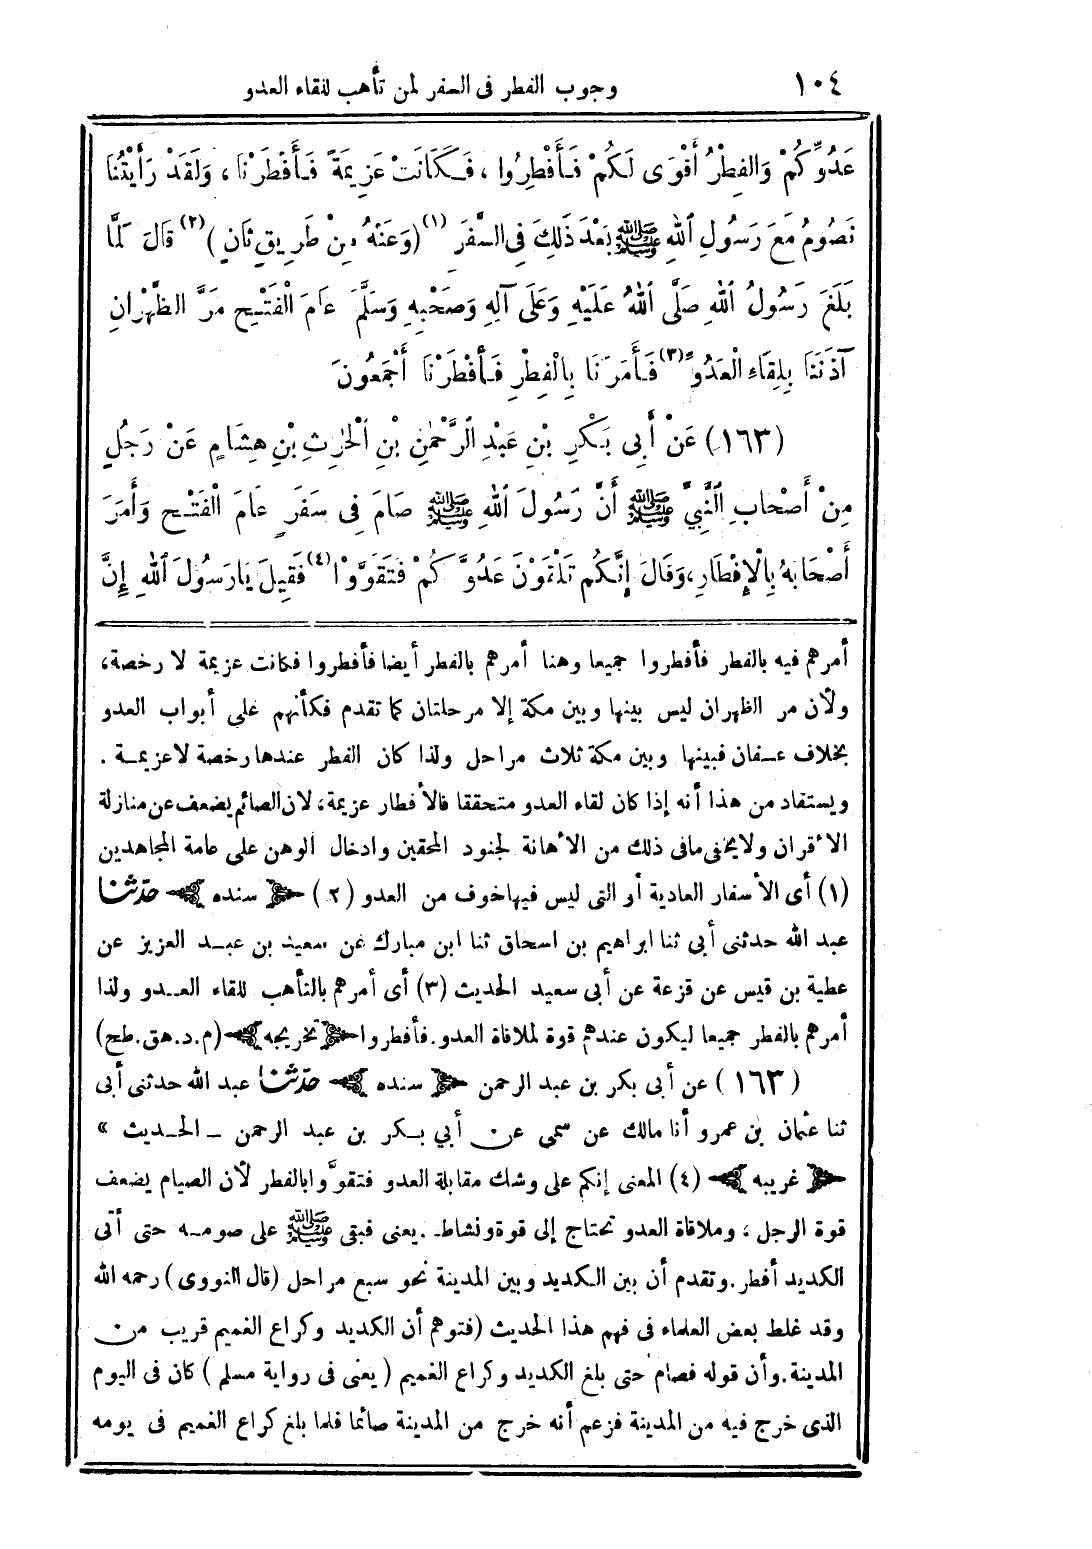 ١٠٤ وجوب الفطر فى السفر لمن تأهب للقاء العدو
عَدُوِّكُمْ وَالفِطْرُ أَقْوَى لَكُمْ فَأَفْطِرُوا ، فَكَانَتْ عَزِيمَةً فَأَفْطَرْنَا ، وَلَقَدْ رَأَيْتُنَا
نَصُومُ مَعَ رَسُولِ اللهِ ﷺ بَعْدَ ذَلِكَ فِى السَّفَرِ (١) (وَعَنْهُ مِنْ طَرِيقٍ ثَانٍ) (٢) قَالَ لَمَّا
بَلَغَ رَسُولُ اللهِ صَلَّى اللهُ عَلَيْهِ وَعَلَى آلِهِ وَصَحْبِهِ وَسَلَّمَ عَامَ الْفَتْحِ مَرَّ الظَّهْرَانِ
آذَنَنَا بِلِقَاءِ الْعَدُوِّ (٣) فَأَمَرَنَا بِالْفِطْرِ فَأَفْطَرْنَا أَجْمَعُونَ
(١٦٣) عَنْ أَبِى بَكْرِ بْنِ عَبْدِ الرَّحْمٰنِ بْنِ الْحٰرِثِ بْنِ هِشَامٍ عَنْ رَجُلٍ
مِنْ أَصْحَابِ النَّبِيِّ ﷺ أَنَّ رَسُولَ اللهِ ﷺ صَامَ فِى سَفَرِ عَامَ الْفَتْحِ وَأَمَرَ
أَصْحَابَهُ بِالْإِفْطَارِ، وَقَالَ إِنَّكُم تَلْقَوْنَ عَدُوَّكُمْ فَتَقَوَّوْا (٤) فَقِيلَ يَارَسُولَ اللهِ إِنَّ
أمرهم فيه بالفطر فأفطروا جميعا وهنا أمرهم بالفطر أيضا فأفطروا فكانت عزيمة لا رخصة،
ولأن مر الظهران ليس بينها وبين مكة إلا مرحلتان كما تقدم فكأنهم على أبواب العدو
بخلاف عسفان فبينها وبين مكة ثلاث مراحل ولذا كان الفطر عندها رخصة لاعزيمة .
ويستفاد من هذا أنه إذا كان لقاء العدو متحققا فالأفطار عزيمة، لان الصائم يضعف عن منازلة
الأقران ولايخفى مافى ذلك من الأهانة لجنود المحقين وادخال الوهن على عامة المجاهدين
(١) أى الأسفار العادية أو التى ليس فيها خوف من العدو (٢) ﴿ سنده ﴾ حدثنا
عبد الله حدثنى أبى ثنا ابراهيم بن اسحاق ثنا ابن مبارك عن سعيد بن عبد العزيز عن
عطية بن قيس عن قزعة عن أبى سعيد الحديث (٣) أى أمرهم بالتأهب للقاء العدو ولذا
أمرهم بالفطر جميعا ليكون عندهم قوة لملاقاة العدو. فأفطروا ﴿ تخريجه ﴾ (م.د.هق.طح)
(١٦٣) عن أبى بكر بن عبد الرحمن ﴿ سنده ﴾ حدثنا عبد الله حدثنى أبى
ثنا عثمان بن عمرو أنا مالك عن سمى عن أبي بكر بن عبد الرحمن ـ الحديث »
﴿ غريبه ﴾ (٤) المعنى إنكم على وشك مقابلة العدو فتقوَّوا بالفطر لأن الصيام يضعف
قوة الرجل ، وملاقاة العدو تحتاج إلى قوة ونشاط . يعنى فبقى ﷺ على صومه حتى أتى
الكديد أفطر. وتقدم أن بين الكديد وبين المدينة نحو سبع مراحل (قال النووى) رحمه الله
وقد غلط بعض العلماء فى فهم هذا الحديث (فتوهم أن الكديد وكراع الغميم قريب من
المدينة. وأن قوله فصام حتى بلغ الكديد وكراع الغميم (يعنى فى رواية مسلم) كان فى اليوم
الذى خرج فيه من المدينة فزعم أنه خرج من المدينة صائما فلما بلغ كراع الغميم فى يومه